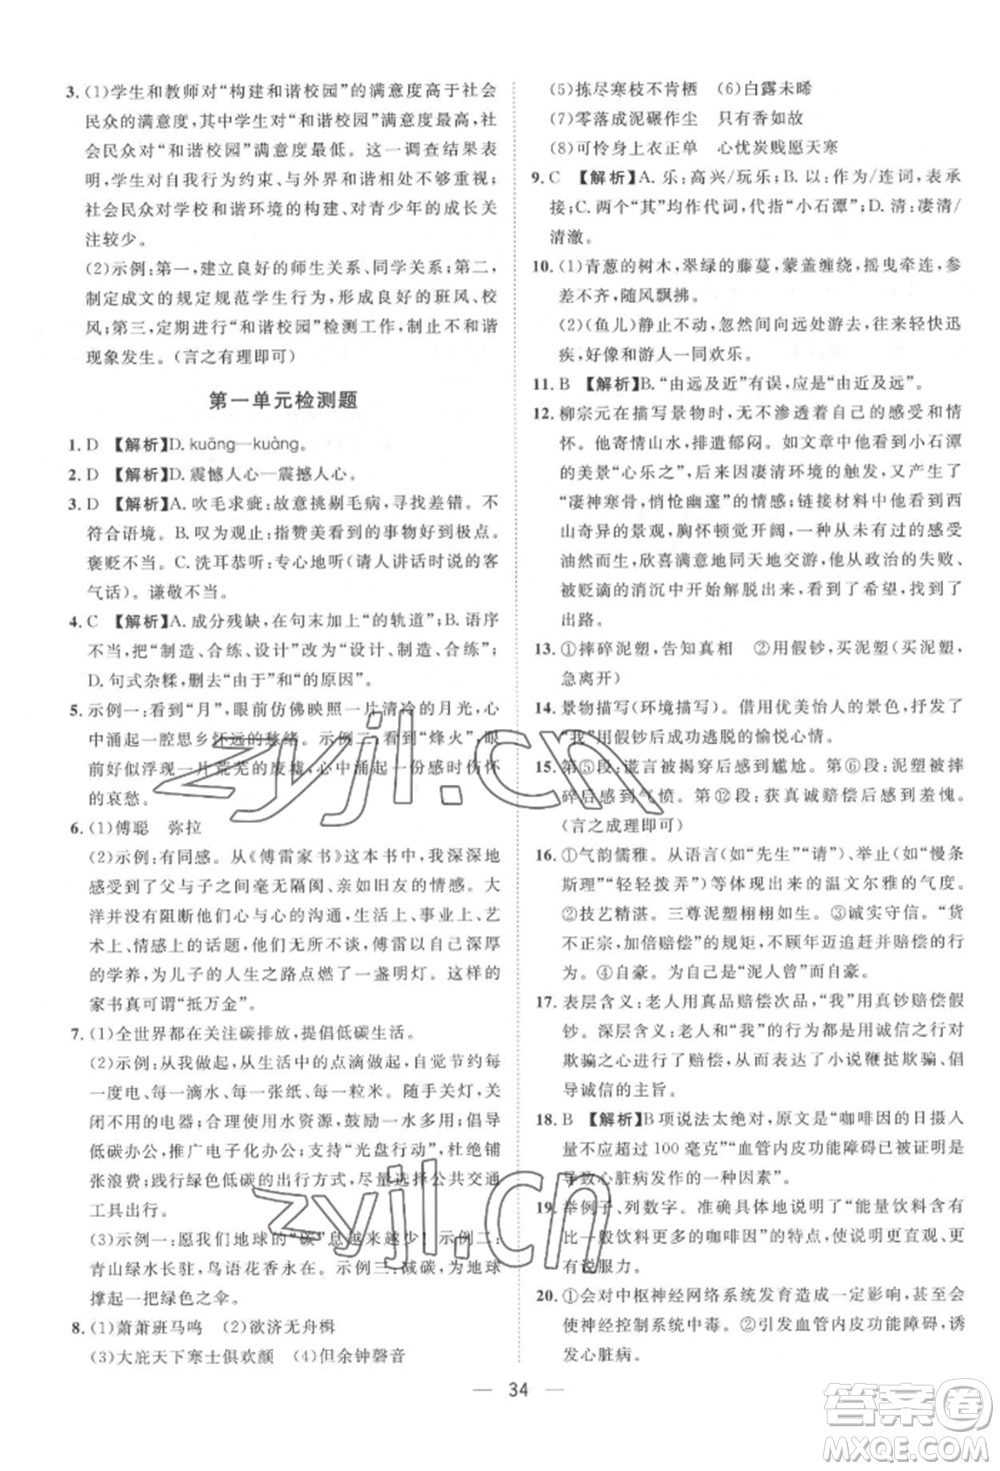 3. (1)学生和教师对“构建和谐校园”的满意度高于社会
民众的满意度,其中学生对“和谐校园”满意度最高,社
会民众对“和谐校园”满意度最低。这一调查结果表
明,学生对自我行为约束、与外界和谐相处较为满意,
社会民众对学校和谐环境的构建、对青少年的成长关
注较少。
(2)示例:第一,建立良好的师生关系、同学关系;第二,
制定成文的规定规范学生行为,营造良好的班风、校
风;第三,定期进行“和谐校园”检测工作,制止不和谐
现象发生。(言之有理即可)
第一单元检测题
1. D 【解析】D. kuāng—kuàng。
2. D 【解析】D. 震憾人心—震撼人心。
3. D 【解析】A. 吹毛求疵:故意挑剔毛病,寻找差错。不
符合语境。B. 叹为观止:指赞美看到的事物好到极点。
褒贬不当。C. 洗耳恭听:专心地听(请人讲话时的客
气话)。谦敬不当。
4. C 【解析】A. 成分残缺,在句末加上“的轨道”;B. 语序
不当,把“制造、合练、设计”改为“设计、制造、合练”;
D. 句式杂糅,删去“由于”和“的原因”。
5. 示例一:看到“月”,眼前仿佛映照一片清冷的月光,心
中涌起一腔思乡怀远的愁绪。示例二:看到“烽火”,眼
前好似浮现一片荒芜的废墟,心中涌起无限感时伤怀
的哀愁。
6. (1)傅聪 弥拉
(2)示例:有同感。从《傅雷家书》这本书中,我深深地
感受到了父与子之间毫无隔阂、亲如旧友的情感。大
洋并没有阻断他们心与心的沟通,生活上、事业上、艺
术上、情感上的话题,他们无所不谈,傅雷用自己深厚
的学养,为儿子的人生之路点燃了一盏明灯。这样的
家书真可谓“抵万金”。
7. (1)全世界都在关注碳排放,提倡低碳生活。
(2)示例:从我做起,从生活中的点滴做起,自觉节约每
一度电、每一滴水、每一张纸、每一粒米。随手关灯,关
闭不用的电器;合理使用水资源,提高水效利用;倡导
低碳办公,推广电子化办公;支持“光盘行动”,杜绝铺
张浪费;践行绿色低碳出行,尽量选择公共交通
工具出行。
(3)示例一:愿我们地球的“碳”息越来越少!示例二:
青山绿水长驻,鸟语花香永存。示例三:减碳,给地球
撑起一把绿色之伞。
8. (1)萧萧班马鸣 (2)欲济无舟楫
(3)大庇天下寒士俱欢颜 (4)但余钟磬音
(5)拣尽寒枝不肯栖 (6)白露未晞
(7)零落成泥碾作尘 只有香如故
(8)可怜身上衣正单 心忧炭贱愿天寒
9. C 【解析】A. 乐:高兴/玩乐;B. 以:作为/连词,表承
接;C. 两个“其”均作代词,代指“小石潭”;D. 清:凄清/
清澈。
10. (1)青葱的树木,翠绿的藤蔓,蒙盖缠绕,摇曳牵连,参
差不齐,随风飘拂。
(2)(鱼儿)静止不动,忽然间向远处游去,来往轻快迅
疾,好像和游人一同欢乐。
11. B 【解析】B.“由远及近”有误,应是“由近及远”。
12. 柳宗元在描写景物时,无不渗透着自己的感受和情
怀。他寓情山水,排遣郁闷。选文中作者由小石潭
的美景“心乐之”,又因其凄清环境的感染,而产生
“凄神寒骨,悄怆幽邃”的情感;链接材料中作者感受西
山奇异的景观,胸怀顿觉开阔,一种前所未有的感受
油然而生,欣喜满意地同天地交游,他从政治的失败、
被贬谪的消沉中开始解脱出来,看到了希望,找到了
出路。
13. ①摔碎泥塑 ②用假钞,买泥塑(用假钞买泥塑后,
急离开)
14. 景物描写(环境描写)。借用优美怡人的景色,抒发了
“我”用假钞后成功逃脱的愉悦心情。
15. 第⑤段:谎言被揭穿后的尴尬。第⑥段:泥塑被摔
碎后感到气愤。第⑫段:获真诚赔偿后感到羞愧。
(言之成理即可)
16. ①气韵儒雅。从语言(如“先生”“请”)、举止(如“慢条
斯理”“轻轻拨弄”)等体现出他的温文尔雅的气度。
②技艺精湛。三尊泥塑栩栩如生。③诚实守信。“货
不正宗,加倍赔偿”的规矩,不顾年迈追赶并赔偿的行
为。④自豪。对技艺与身为“泥人曾”而自豪。
17. 表层含义:老人用真品赔偿次品,“我”用真钞赔偿假
钞。深层含义:老人和“我”的行为都是用诚信之行对
欺骗之心进行了赔偿,从而达到了小说鞭挞欺骗、倡
导诚信的主旨。
18. B 【解析】B项说法太绝对,原文是“咖啡因的日摄入
量不应超过100毫克”“血管内皮功能障碍已被证明是
导致心脏病发作的一种因素”。
19. 举例子、列数字。准确具体地说明了“能量饮料含有
比一般饮料更多的咖啡因”这一特点,使说明更具体、更
有说服力。
20. ①会对中枢神经网络系统发育造成一定影响,甚至会
使神经控制系统中毒。②引发血管内皮功能障碍,诱
发心脏病。
34
zyjl.cn
zyjl.cn
答案圈
MXQE.COM